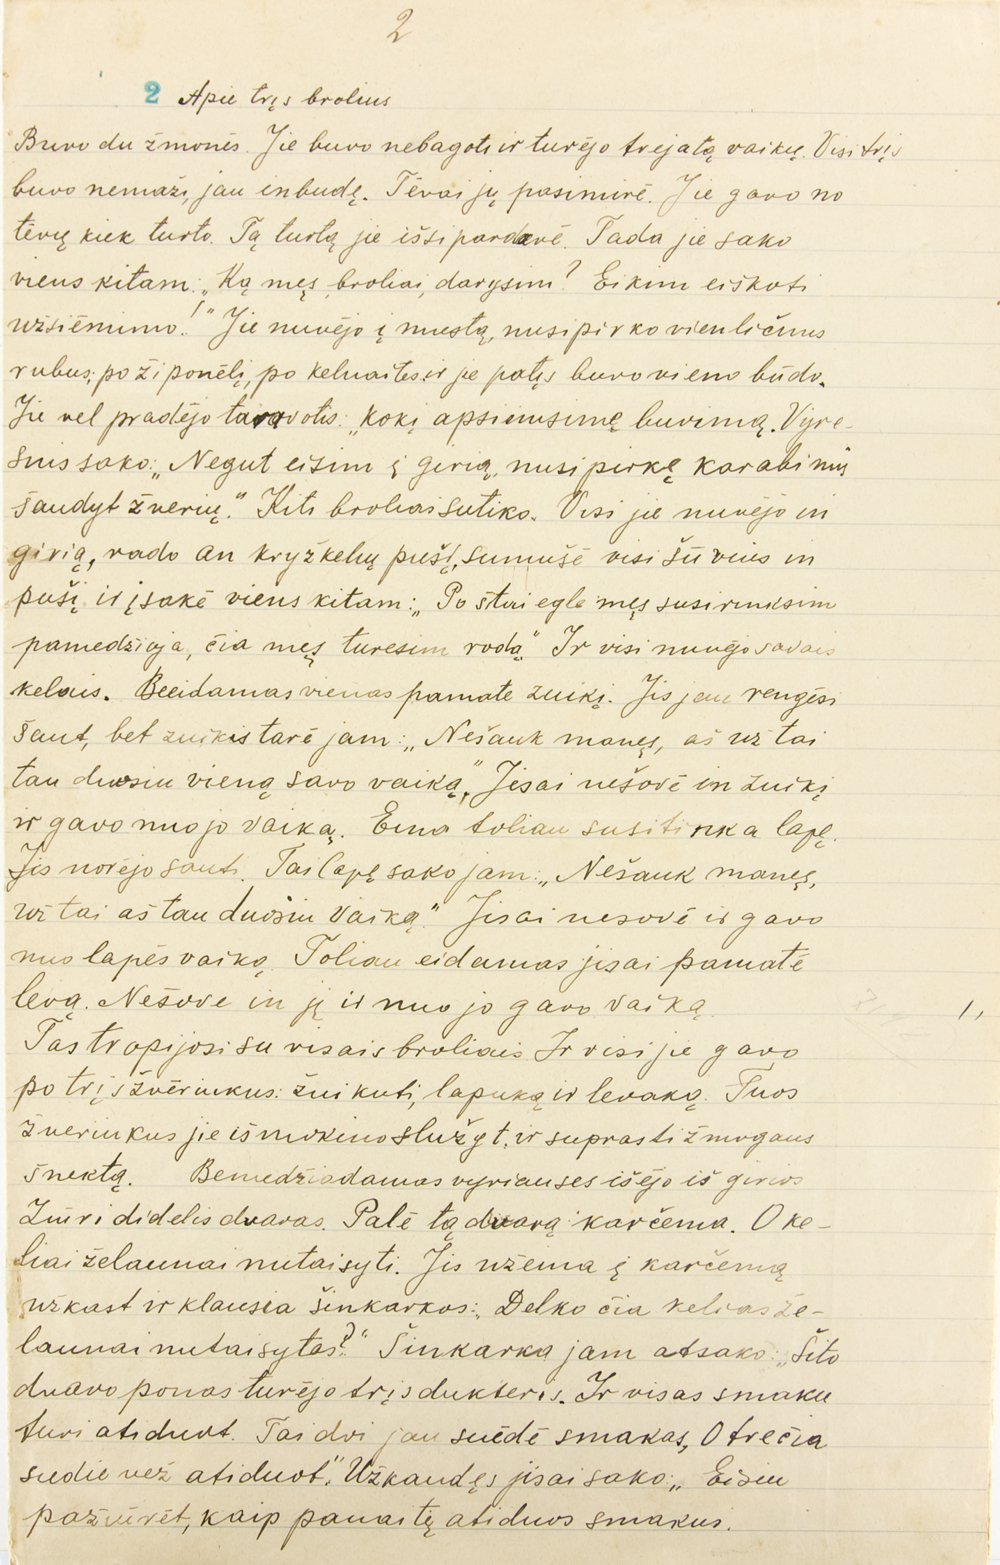 2
2 Apie tręs brolius
Buvo du žmonės. Jie buvo nebagoti ir turėjo trejatą vaikų. Visi tręs
buvo nemaži, jau inbudę. Tėvai jų pasimirė. Jie gavo no
tėvų kiek turto. Tą turtą jie išsipardavė. Tada jie sako
viens kitam: „Ką męs, broliai, darysim? Eikim eiškoti
užsiėmimo!" Jie nuvėjo į mestą, nusipirko vienličinus
rubus, po žiponėlį, po kelnaites ir jie patįs buvo vieno būdo.
Jie vel pradėjo taravotis: „kokį apsiemsimę buvimą. Vyre-
snis sako: „Negut eisim į girią, nusipirkę karabinus
šaudyt žverių." Kiti broliai sutiko. Visi jie nuvėjo in
girią, rado an kryžkelių pušį, sumušė visi šūvius in
pušį ir įsakė viens kitam: „Po štai egle męs susirinksim
pamedžioja, čia męs turesim rodą" Ir visi nuvėjo savais
kelais. Beeidamas vienas pamate zuikį. Jis jau rengėsi
šaut, bet zuikis tarė jam: „Nešauk manęs, aš už tai
tau duosiu vieną savo vaiką". Jisai nešovė in zuikį
ir gavo nuo jo vaiką. Eina toliau susitinka lapę.
Jis norėjo šauti. Tai lapę sako jam: „Nešauk manęs,
už tai aš tau duosiu vaiką" Jisai nešovė ir gavo
nuo lapės vaiką. Toliau eidamas jisai pamatė
levą. Nešove in jį ir nuo jo gavo vaiką
Tas tropijosi su visais broliais Ir visi jie gavo
po trįs žvėriukus: zuikuti, lapuką ir levaką. Tuos
žveriukus jie išmokino služyt, ir suprasti žmogaus
šnektą. Bemedžiodamas vyriauses išėjo iš girios
Žiūri didelis dvaras. Palė tą dvarą karčema. O ke-
liai želaunai nutaisyti. Jis užeina į karčemą
užkast ir klausia šinkarkos: „Delko čia kelias že-
launai nutaisytas?" Šinkarka jam atsako: „Šito
dvaro ponas turėjo trįs dukteris. Ir visas smaku
turi atiduot. Tai dvi jau suėdė smakas, O trečia
sudie než atiduot". Užkandęs jisai sako: „Eisiu
pažiūrėt, kaip panaitę atiduos smakus.